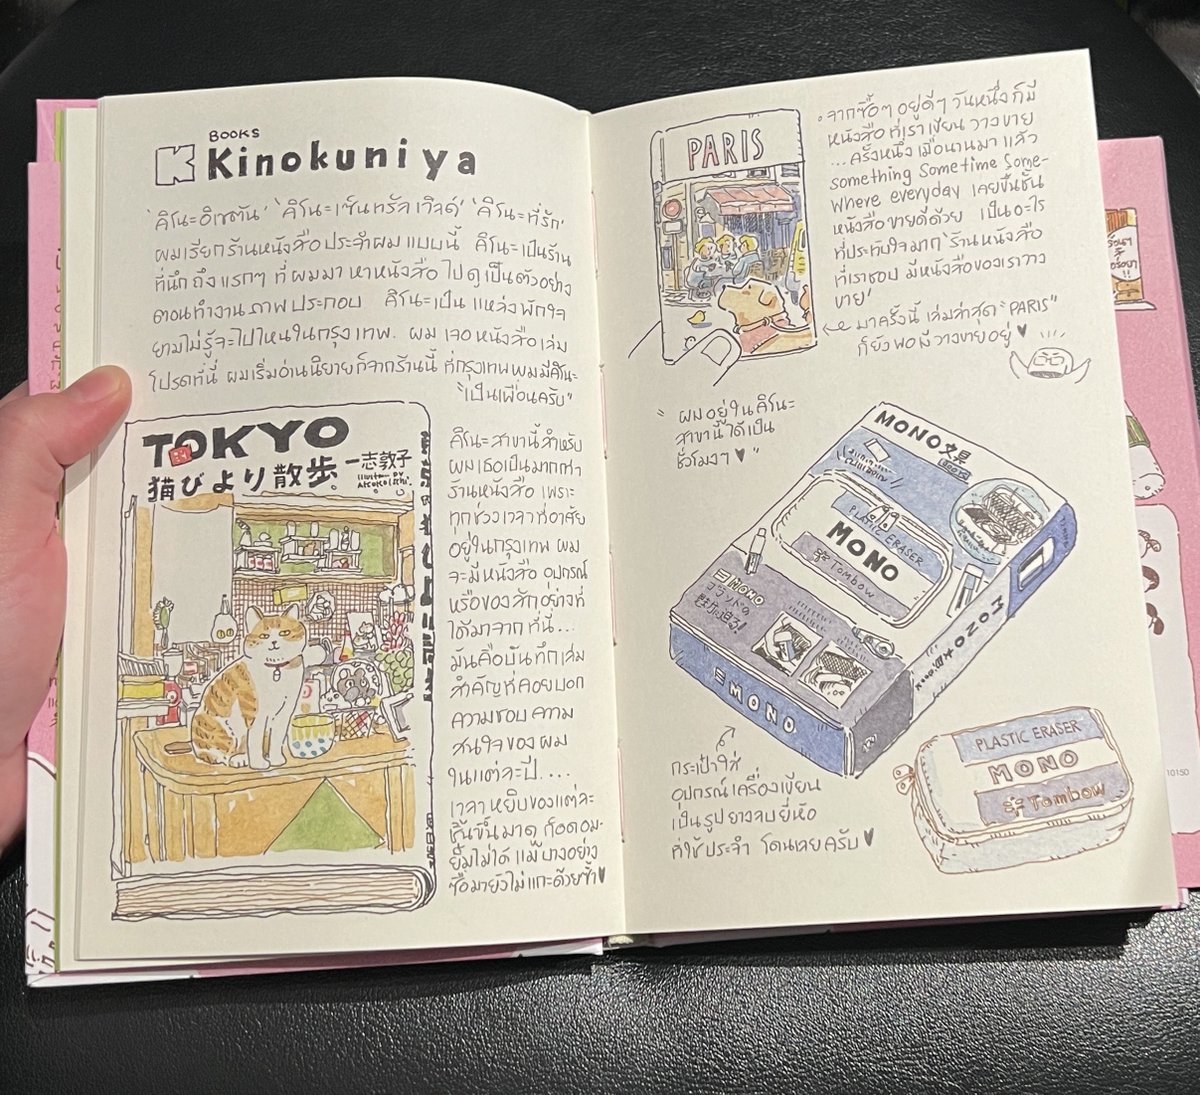 BOOKS
Kinokuniya
'คิโนะอิเซตัน' 'คิโนะเซ็นทรัลเวิลด์' 'คิโนะที่รัก'
ผมเรียกร้านหนังสือประจำผมแบบนี้ คิโนะเป็นร้าน
ที่นึกถึงแรกๆ ที่ผมมาหาหนังสือไปดูเป็นตัวอย่าง
ตอนทำงานภาพประกอบ คิโนะเป็นแหล่งพักใจ
ยามไม่รู้จะไปไหนในกรุงเทพ. ผมเจอหนังสือเล่ม
โปรดที่นี่ ผมเริ่มอ่านนิยายก็จากร้านนี้ ที่กรุงเทพผมมีคิโนะ
"เป็นเพื่อนครับ"
TOKYO
猫びより散歩
一志敦子
Illustration by
คิโนะสาขานี้สำหรับ
ผมเธอเป็นมากกว่า
ร้านหนังสือ เพราะ
ทุกช่วงเวลาที่อาศัย
อยู่ในกรุงเทพ ผม
จะมีหนังสือ อุปกรณ์
หรือของสักอย่างที่
ได้มาจากที่นี่...
มันคือบันทึกเล่ม
สำคัญที่คอยบอก
ความชอบความ
สนใจของผม
ในแต่ละปี....
เวลาหยิบของแต่ละ
ชิ้นขึ้นมาดู ก็อดอม-
ยิ้มไม่ได้ แม้บางอย่าง
ซื้อมายังไม่แกะด้วยซ้ำ♥
PARIS
จากซื้อๆ อยู่ดีๆ วันหนึ่งก็มี
หนังสือที่เราเขียน วางขาย
...ครั้งหนึ่งเมื่อนานมาแล้ว
something Sometime Some-
where everyday เคยขึ้นชั้น
หนังสือขายดีด้วย เป็นอะไร
ที่ประทับใจมาก 'ร้านหนังสือ
ที่เราชอบ มีหนังสือของเราวาง
ขาย'
มาครั้งนี้ เล่มล่าสุด "PARIS"
ก็ยังพอมีวางขายอยู่ ♥
"ผมอยู่ในคิโนะ
สาขานี้ได้เป็น
ชั่วโมงๆ ♥"
MONO文具
BOOK
PLASTIC ERASER
MONO
Tombow
MONO
ブランドの
MONO
MONO文具BOOK
กระเป๋าใส่
อุปกรณ์เครื่องเขียน
เป็นรูปยางลบยี่ห้อ
ที่ใช้ประจำ โดนเลยครับ ♥
PLASTIC ERASER
MONO
Tombow
10150